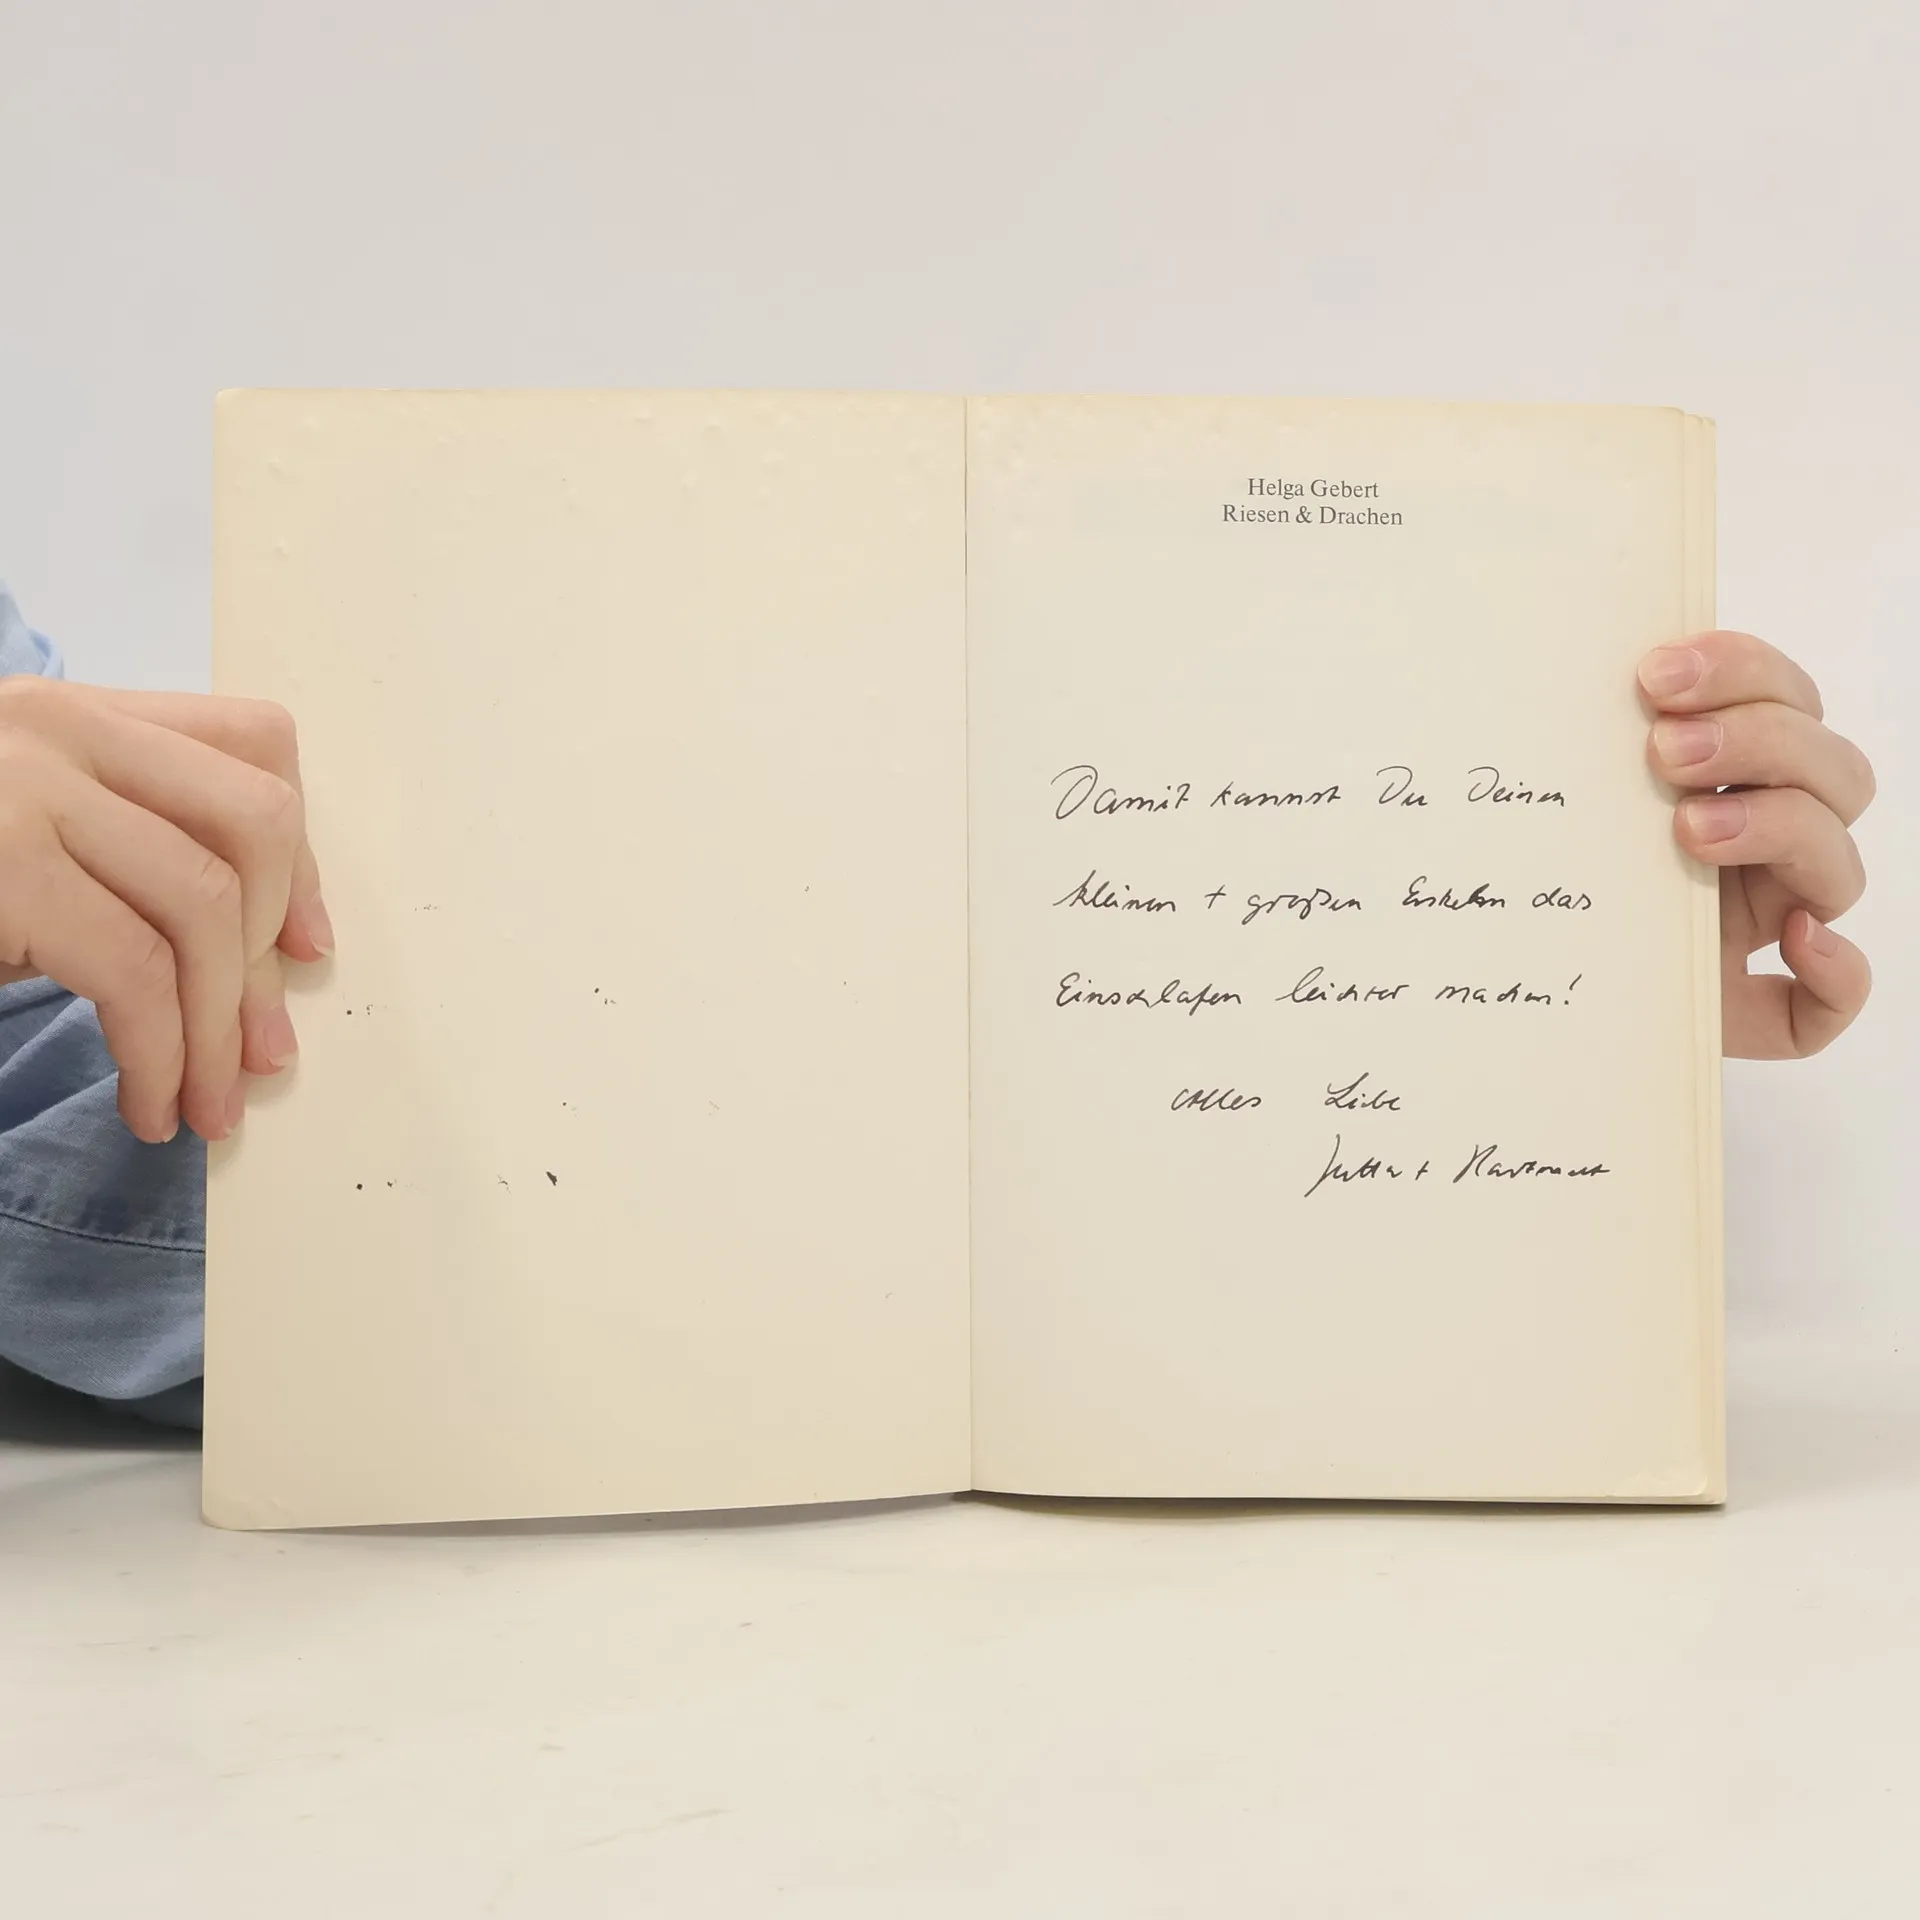 Helga Gebert
Riesen & Drachen
Damit kannst Du Deinen
kleinen + großen Enkeln das
Einschlafen leichter machen!
Alles Liebe
Jutta + Hartmut